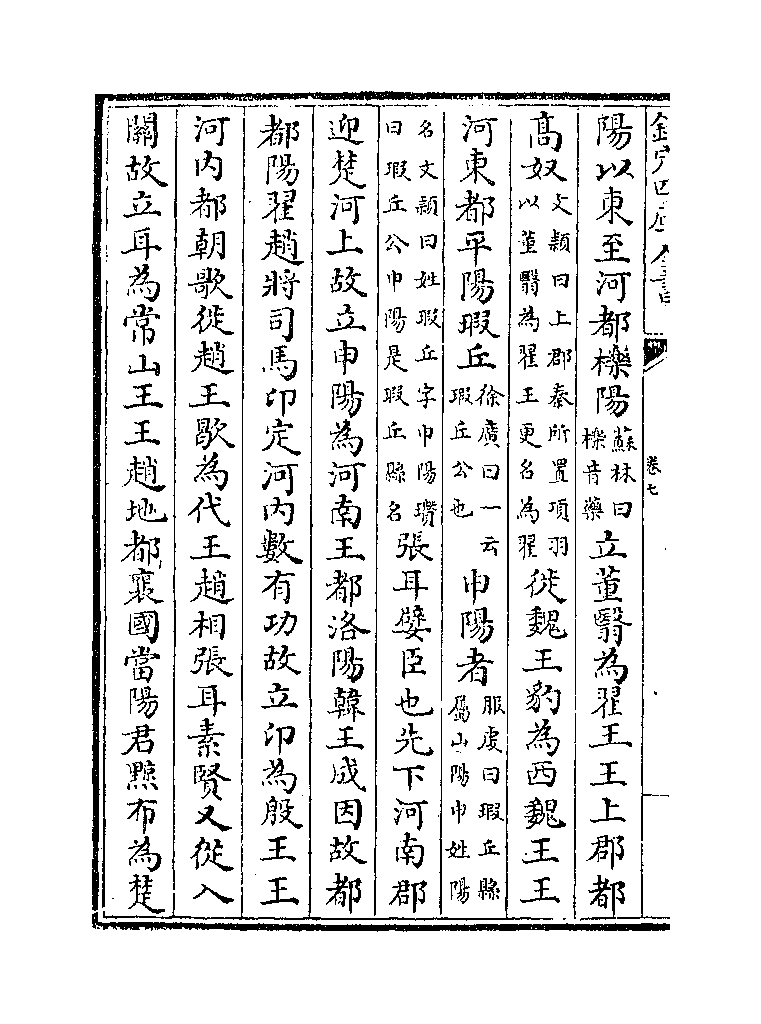 欽定四庫全書
卷七
陽以東至河都櫟陽蘇林曰櫟音藥立董翳為翟王王上郡都
高奴文穎曰上郡秦所置項羽以董翳為翟王更名為翟徙魏王豹為西魏王王
河東都平陽瑕丘徐廣曰一云瑕丘公也申陽者服虔曰瑕丘縣屬山陽申姓陽
名文穎曰姓瑕丘字申陽瓚曰瑕丘公申陽是瑕丘縣名張耳嬖臣也先下河南郡
迎楚河上故立申陽為河南王都洛陽韓王成因故都
都陽翟趙將司馬卬定河内數有功故立卬為殷王王
河内都朝歌徙趙王歇為代王趙相張耳素賢又從入
關故立耳為常山王王趙地都襄國當陽君黥布為楚